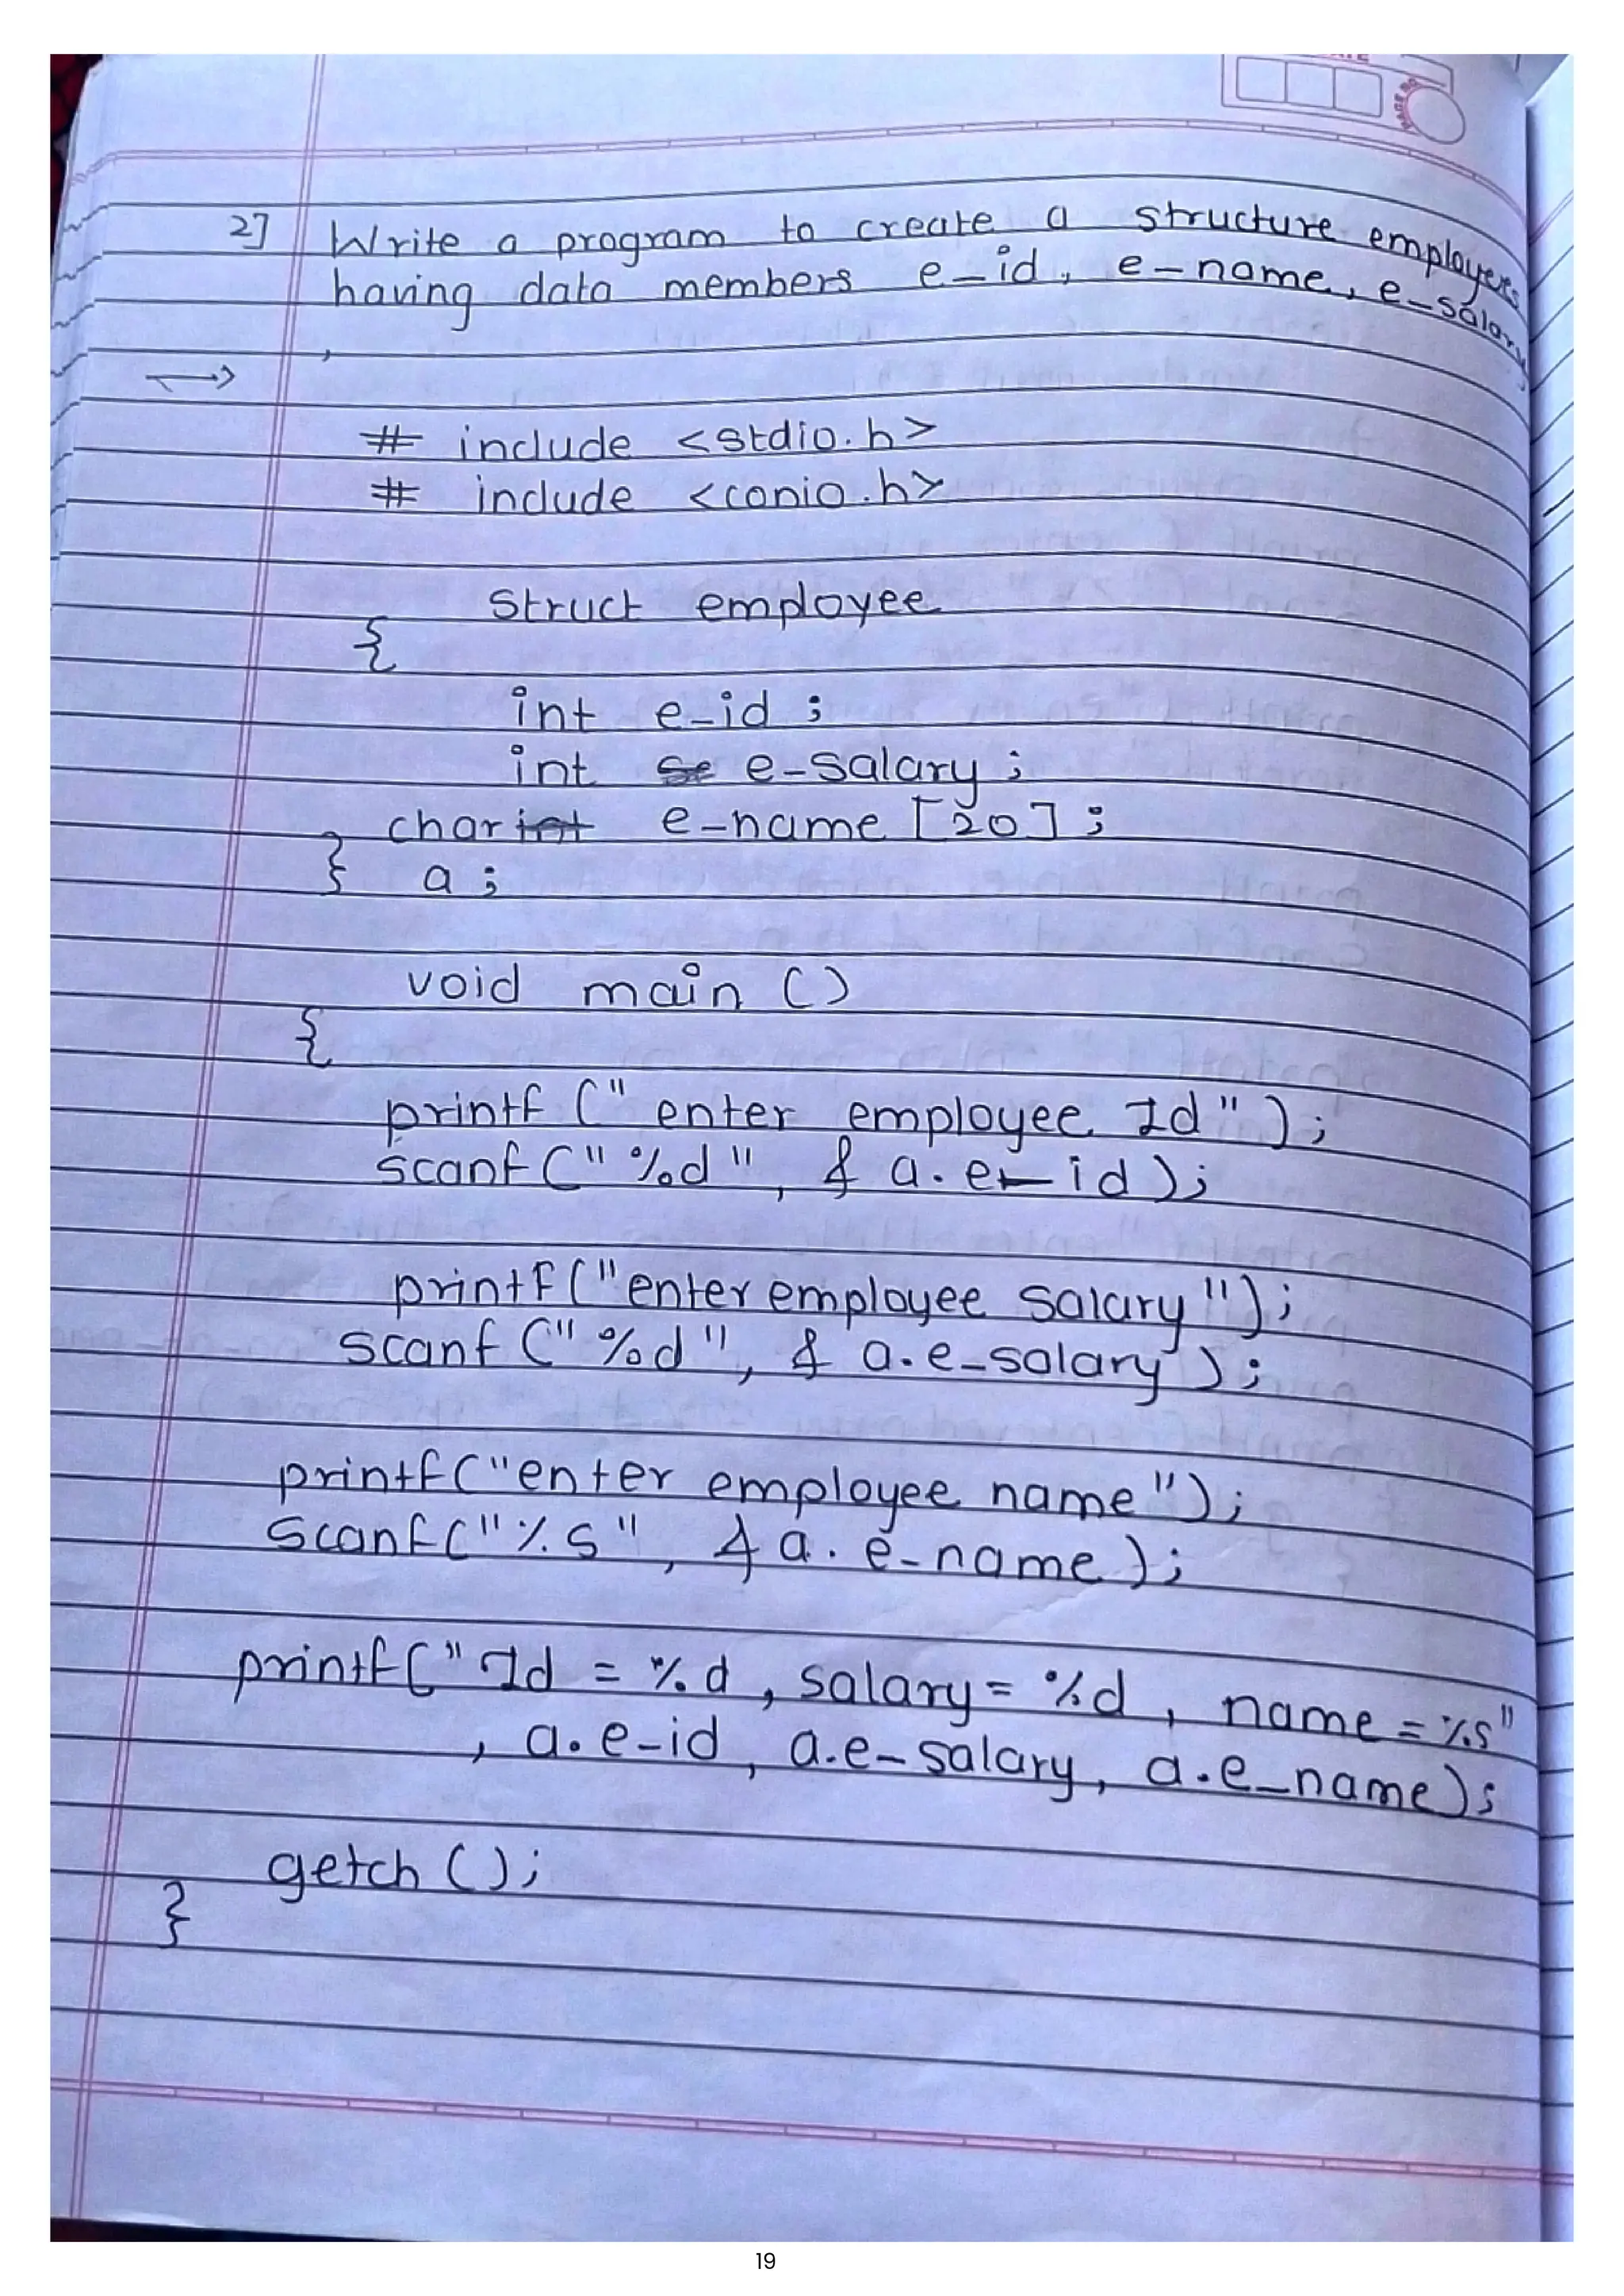 2] Write a program to create a structure employees
having data members e_id, e-name, e_salary
# include <stdio.h>
# include <conio.h>
struct employee
{
int e_id ;
int e-salary ;
char e-name [20] ;
} a ;
void main ()
{
printf (" enter employee Id" ) ;
scanf (" %d " , & a . e_id ) ;
printf ("enter employee salary ") ;
scanf (" %d ", & a.e_salary ) ;
printf("enter employee name ") ;
scanf(" %s " , & a . e-name ) ;
printf(" Id = %d , salary = %d , name = %s"
, a.e-id , a.e-salary , a.e_name) ;
getch () ;
}
19